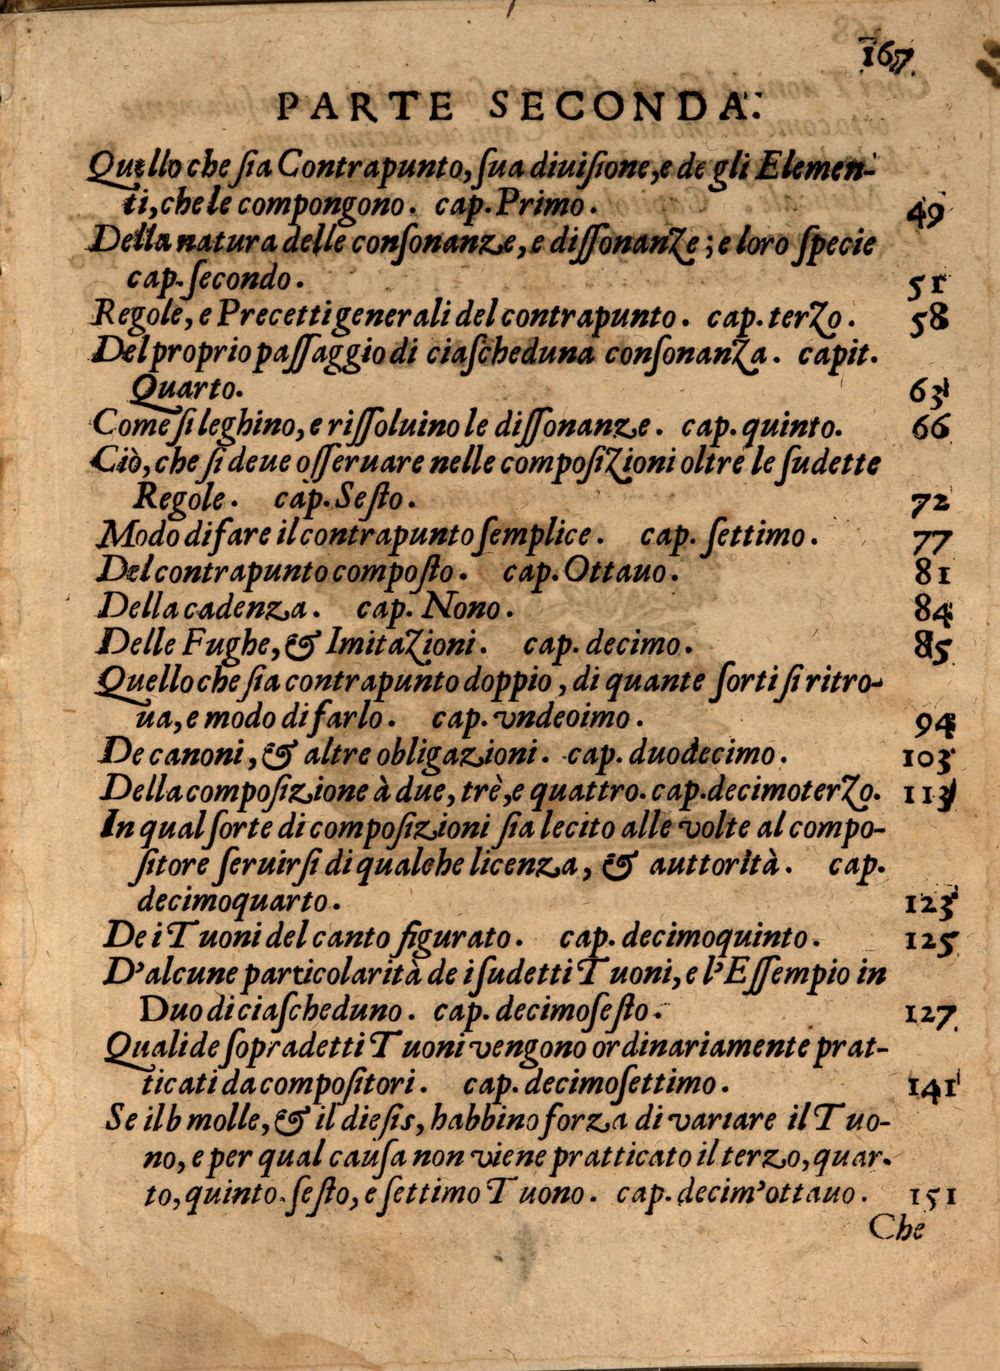 167
PARTE SECONDA.
Quello che ſia Contrapunto, ſua diuiſione, e de gli Elemen-
ti, che le compongono. cap. Primo. 49
Della natura delle conſonanze, e diſſonanze; e loro ſpecie
cap. ſecondo. 51
Regole, e Precetti generali del contrapunto. cap. terzo. 58
Del proprio paſſaggio di ciaſcheduna conſonanza. capit.
Quarto. 63
Come ſi leghino, e riſſoluino le diſſonanze. cap. quinto. 66
Ciò, che ſi deue oſſeruare nelle compoſizioni oltre le ſudette
Regole. cap. Seſto. 72
Modo di fare il contrapunto ſemplice. cap. ſettimo. 77
Del contrapunto compoſto. cap. Ottauo. 81
Della cadenza. cap. Nono. 84
Delle Fughe, & Imitazioni. cap. decimo. 85
Quello che ſia contrapunto doppio, di quante ſorti ſi ritro-
ua, e modo di farlo. cap. vndeoimo. 94
De canoni, & altre obligazioni. cap. duodecimo. 103
Della compoſizione à due, trè, e quattro. cap. decimoterzo. 113
In qual ſorte di compoſizioni ſia lecito alle volte al compo-
ſitore ſeruirſi di qualche licenza, & auttorità. cap.
decimoquarto. 123
De i Tuoni del canto figurato. cap. decimoquinto. 125
D'alcune particolarità de i ſudetti Tuoni, e l'Eſſempio in
Duo di ciaſcheduno. cap. decimoſeſto. 127
Quali de ſopradetti Tuoni vengono ordinariamente prat-
ticati da compoſitori. cap. decimoſettimo. 141
Se il b molle, & il dieſis, habbino forza di variare il Tuo-
no, e per qual cauſa non viene pratticato il terzo, quar-
to, quinto. ſeſto, e ſettimo Tuono. cap. decim'ottauo. 151
Che